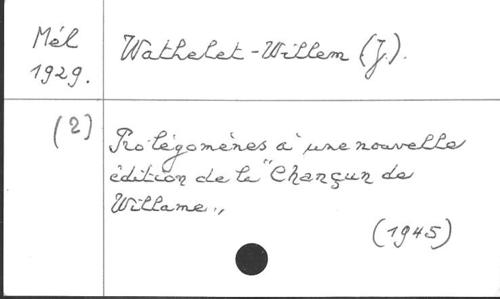 Mél
1929.
Wathelet-Willem (J.).
(2)
Prolégomènes à une nouvelle
édition de la "Chançun de
Willame„
(1945)